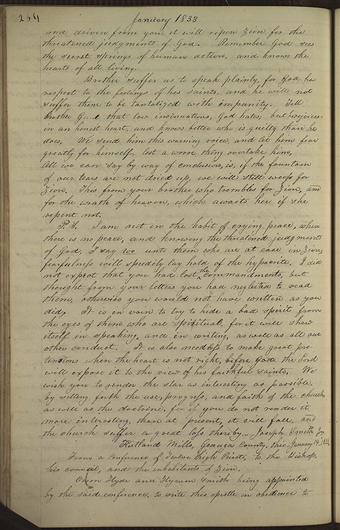 264
January 1833
and driven from you it will ripen Zion for the
threatened judgments of God. Remember God sees
the secret springs of human action, and knows the
hearts of all living.
Brother suffer us to speak plainly, for God has
respect to the feelings of his saints, and he will not
suffer them to be tantalized with impunity. Tell
brother G that low insinuations, God hates, but he rejoices
in an honest heart, and knows better who is guilty than he
does. We send him this warning voice, and let him fear
greatly for himself, lest a worse thing overtake him,
All we can say by way of conclusion is, if the fountain
of our tears are not dried up, we will still weep for
Zion. This from your brother who trembles for Zion, and
for the wrath of heaven, which awaits her if she
repent not.
P.S. I am not in the habit of crying peace, when
there is no peace, and knowing the threatened judgments
of God, I say wo unto them who are at ease in Zion,
fearfulness will speedily lay hold of the hypocrite. I did
not expect that you had lost the commandments, but
thought from your letters you had neglected to read
them, otherwise you would not have written as you
did. It is in vain to try to hide a bad spirit from
the eyes of them who are spiritual, for it will shew
itself in speaking, and in writing, as well as all our
other conduct. It is also needless to make great pre
tentions when the heart is not right before God, the Lord
will expose it to the view of his faithful saints, We
wish you to render the Star as interesting as possible
by setting forth the rise, progress, and faith of the church,
as well as the doctrine, for if you do not render it
more interesting than at present, it will fall, and
the church suffer a great loss thereby. Joseph Smith Jr.
Kirtland Mills, Geauga County, Ohio, January 14, 1833
From a Conference of Twelve High Priests, to the Bishop
his council, and the inhabitants of Zion.
Orson Hyde and Hyrum Smith being appointed
by the said conference, to write this epistle in obedience to